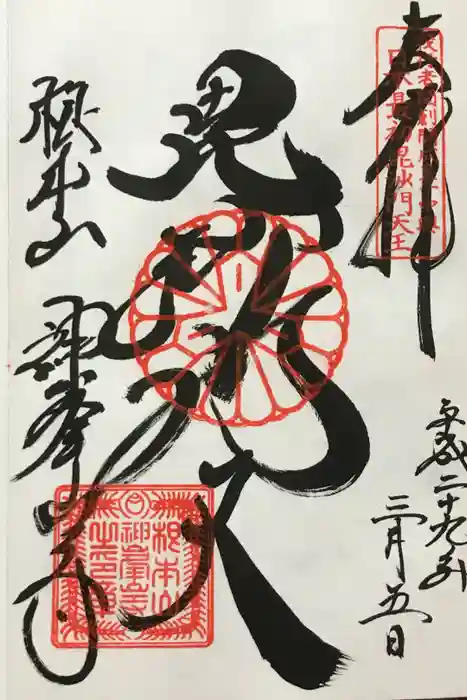 奉拝
日本最初毘沙門天王
平成二十九年
三月五日
毘沙門天
根本山
神峯山寺
根本山
神峯山寺
之印